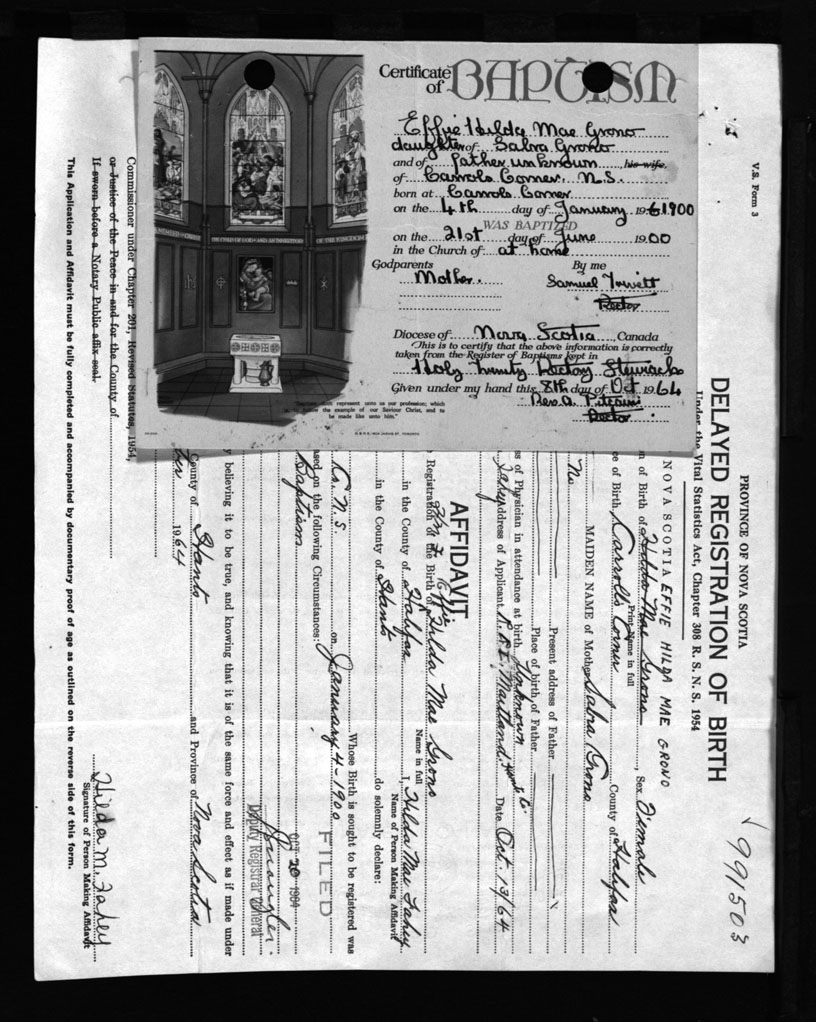 Certificate of BAPTISM
Effie Hilda Mae Grono
daughter of Sabra Grono
and of father unknown his wife
of Carrols Corner, N.S.
born at Carrols Corner
on the 4th day of January 1900
WAS BAPTIZED
on the 21st day of June 1900
in the Church of at home
Godparents By me
Mother. Samuel Trivett
Rector
Diocese of Nova Scotia, Canada
This is to certify that the above information is correctly
taken from the Register of Baptisms kept in
Holy Trinity Rectory Stewiacke
Given under my hand this 8th day of Oct 1964
Rev. A. Pitcairn
Rector
represent unto us our profession; which
the example of our Saviour Christ, and to
be made like unto him."
V.S. Form 3
PROVINCE OF NOVA SCOTIA
DELAYED REGISTRATION OF BIRTH
Under the Vital Statistics Act, Chapter 308 R. S. N. S. 1954
√ 991503
NOVA SCOTIA EFFIE HILDA MAE GRONO
n of Birth of Hilda Mae Grono, Sex Female
Print Name in full
ce of Birth, Carroll's Corner County of Halifax
No
MAIDEN NAME of Mother Sabra Grono
Present address of Father
Place of birth of Father
ss of Physician in attendance at birth Unknown
Fahey Address of Applicant R.R.1, Maitland, Hants Co. Date Oct. 13/64
AFFIDAVIT
Registration of the Birth of Effie Hilda Mae Grono
Name in full
in the County of Halifax I, Hilda Mae Fahey
Name of Person Making Affidavit
in the County of Hants do solemnly declare:
Whose Birth is sought to be registered was
Co. N.S. on January 4-1900
ased on the following Circumstances:
Baptism
FILED
OCT 20 1964
Deputy Registrar General
y believing it to be true, and knowing that it is of the same force and effect as if made under
County of Hants and Province of Nova Scotia
1964
Hilda M. Fahey
Signature of Person Making Affidavit
Commissioner under Chapter 201, Revised Statutes, 1954,
or Justice of the Peace in and for the County of
If sworn before a Notary Public affix seal.
This Application and Affidavit must be fully completed and accompanied by documentary proof of age as outlined on the reverse side of this form.